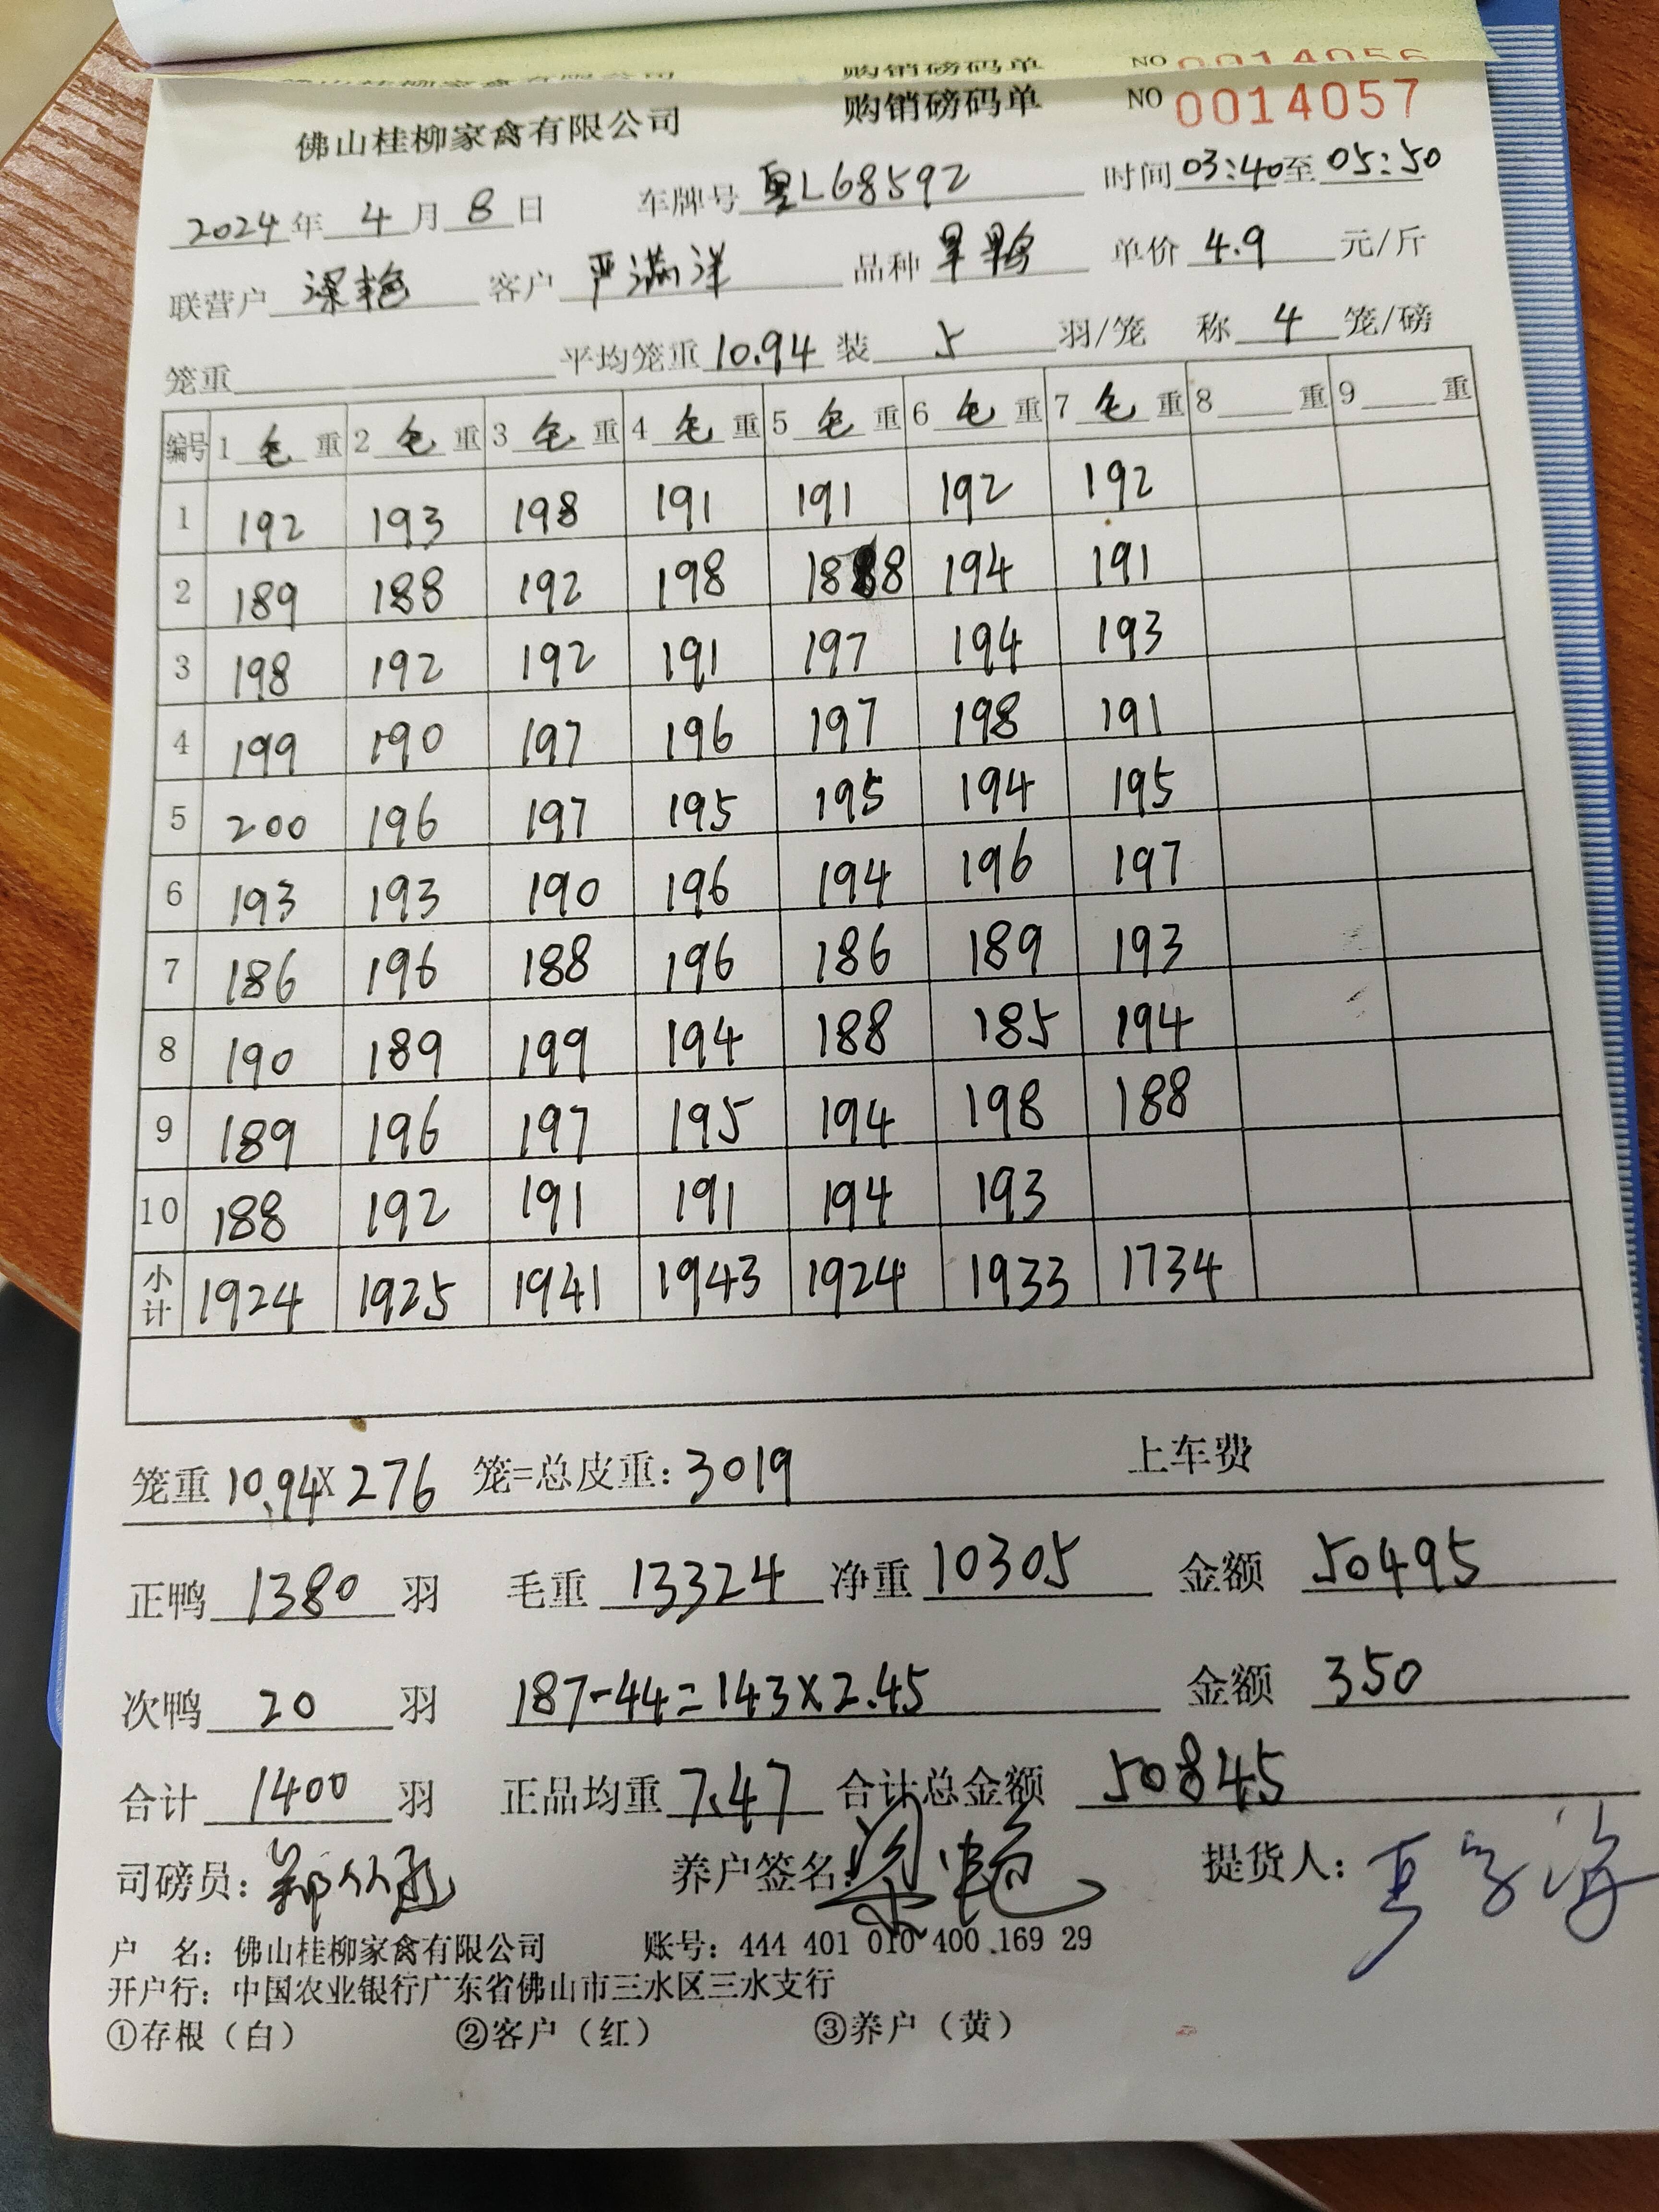 购销磅码单 NO 0014056
佛山桂柳家禽有限公司 购销磅码单 NO 0014057
2024年 4月 8日 车牌号 粤L68592 时间 03:40至 05:50
联营户 梁艳 客户 严满洋 品种 单价 4.9 元/斤
笼重 平均笼重 10.94 装 5 羽/笼 称 4 笼/磅
编号 1 毛 重 2 毛 重 3 毛 重 4 毛 重 5 毛 重 6 毛 重 7 毛 重 8 重 9 重
1 192 193 198 191 191 192 192
2 189 188 192 198 188 194 191
3 198 192 192 191 197 194 193
4 199 190 197 196 197 198 191
5 200 196 197 195 195 194 195
6 193 193 190 196 194 196 197
7 186 196 188 196 186 189 193
8 190 189 199 194 188 185 194
9 189 196 197 195 194 198 188
10 188 192 191 191 194 193
小计 1924 1925 1941 1943 1924 1933 1734
笼重 10.94X 276 笼=总皮重: 3019 上车费
正鸭 1380 羽 毛重 13324 净重 10305 金额 50495
次鸭 20 羽 187-44=143×2.45 金额 350
合计 1400 羽 正品均重 7.47 合计总金额 50845
司磅员: 养户签名: 梁艳 提货人:
户 名: 佛山桂柳家禽有限公司 账号: 444 401 010 400 169 29
开户行: 中国农业银行广东省佛山市三水区三水支行
①存根（白） ②客户（红） ③养户（黄）